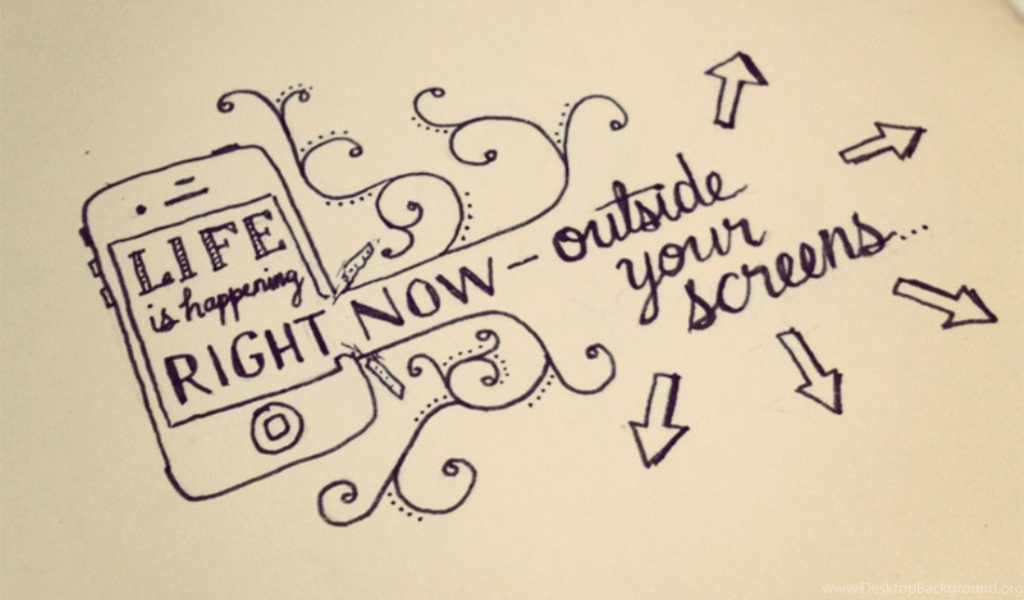 LIFE
is happening
RIGHT NOW - outside
your
screens...
www.DesktopBackground.org